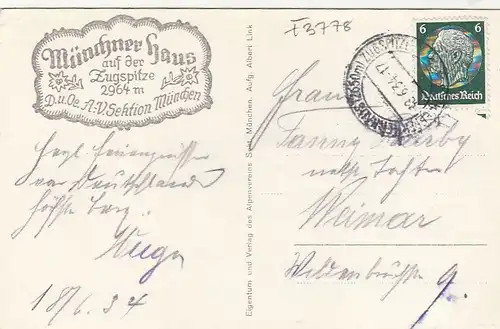 Münchner Haus
auf der
Zugspitze
2964 m
D.u.Oe.A.V. Sektion München
I3778
6 6
Deutsches Reich
Herzl. Feriengrüsse
von Deutschlands
höchstem Berg.
Hugo
18/6.34
Eigentum und Verlag des Alpenvereins Sekt. München. Aufg. Albert Link
Frau
Fanny
nebst Tochter
Weimar
9.